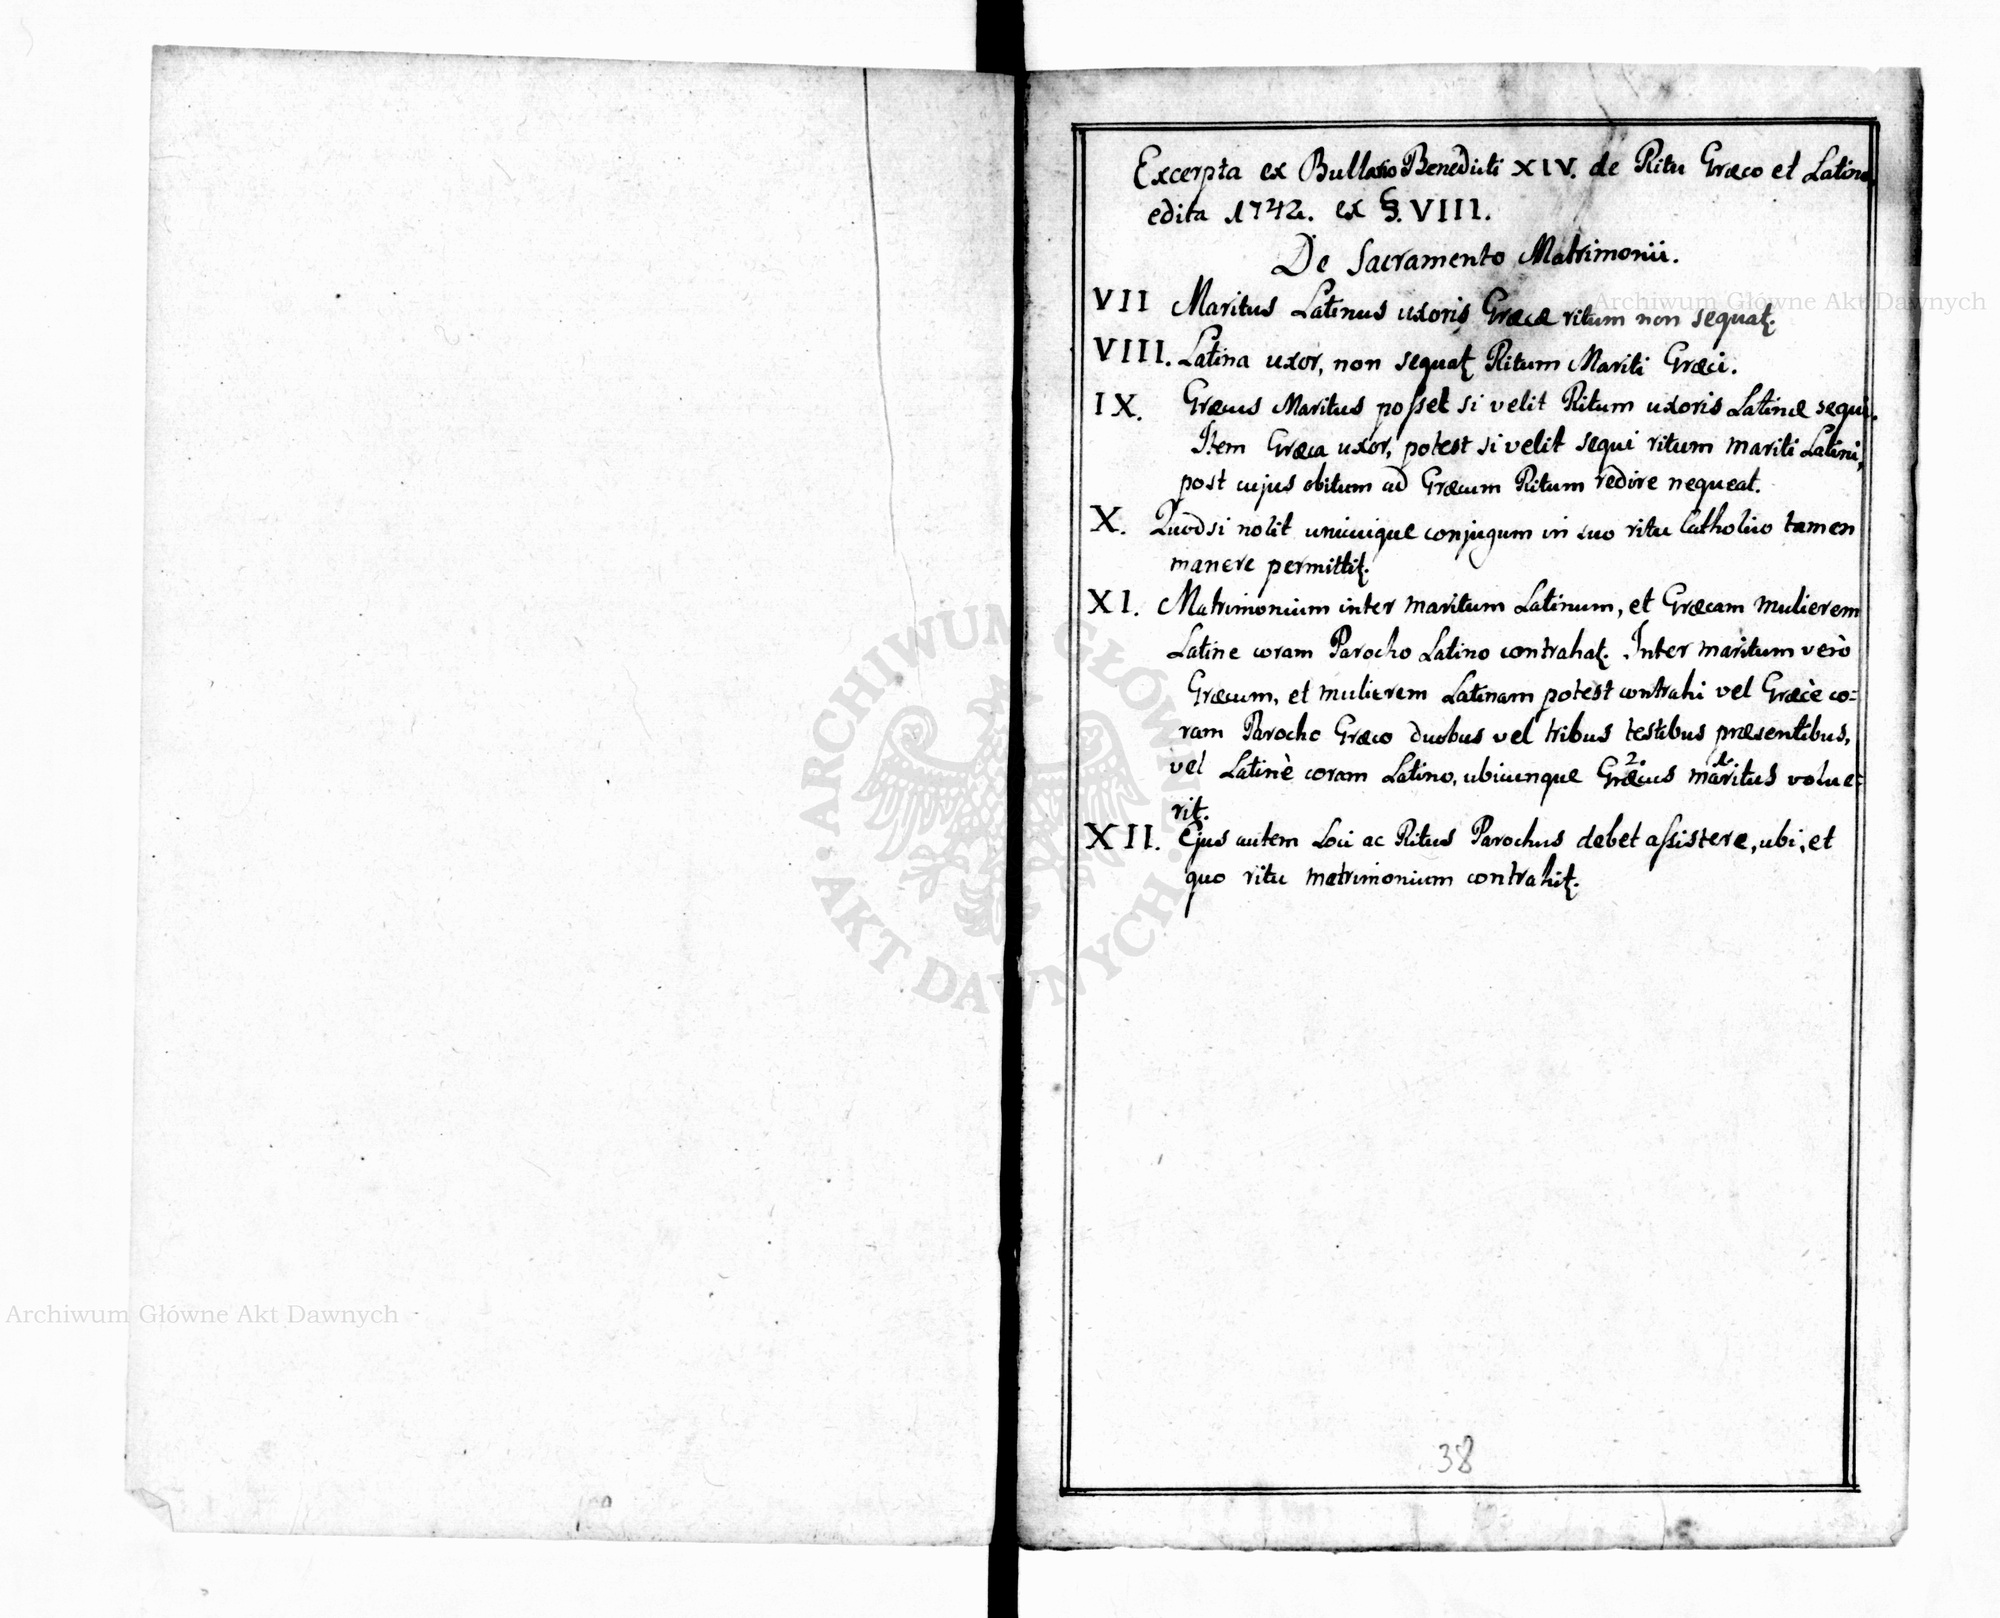 Excerpta ex Bullario Benedicti XIV. de Ritu Græco et Latino
edita 1742. ex §. VIII.
De Sacramento Matrimonii.
VII Maritus Latinus uxoris Græcæ ritum non sequat.
VIII. Latina uxor, non sequat Ritum Mariti Græci.
IX. Græcus Maritus posset si velit Ritum uxoris Latinæ sequi.
Item Græca uxor, potest si velit sequi ritum mariti Latini,
post cujus obitum ad Græcum Ritum redire nequeat.
X. Quodsi nolit unicuique conjugum in suo ritu Catholico tamen
manere permittit.
XI. Matrimonium inter maritum Latinum, et Græcam mulierem
Latine coram Parocho Latino contrahat. Inter maritum verò
Græcum, et mulierem Latinam potest contrahi vel Græcè co=
ram Parocho Græco duobus vel tribus testibus præsentibus,
vel Latinè coram Latino, ubicunque Græcus maritus volue=
rit.
XII. Ejus autem Loci ac Ritus Parochus debet assistere, ubi, et
quo ritu matrimonium contrahit.
38
Archiwum Główne Akt Dawnych
Archiwum Główne Akt Dawnych
ARCHIWUM GŁÓWNE AKT DAWNYCH